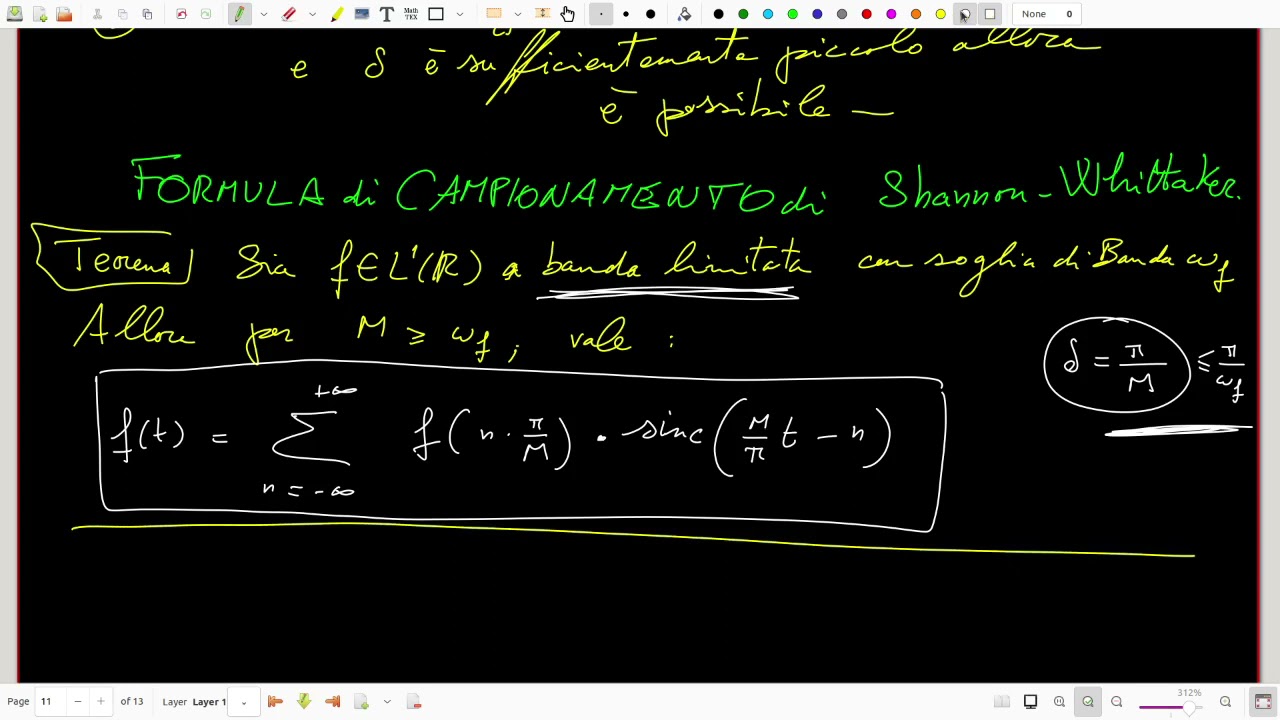 Math
TEX
None 0
e δ è sufficientemente piccolo allora
è possibile —
FORMULA di CAMPIONAMENTO di Shannon-Whittaker.
Teorema Sia f∈L¹(ℝ) a banda limitata con soglia di Banda ω_f
Allora per M ≥ ω_f, vale :
δ = π/M ≤ π/ω_f
f(t) = ∑_{n=-∞}^{+∞} f(n · π/M) · sinc(M/π t - n)
Page 11 of 13 Layer Layer 1 312%